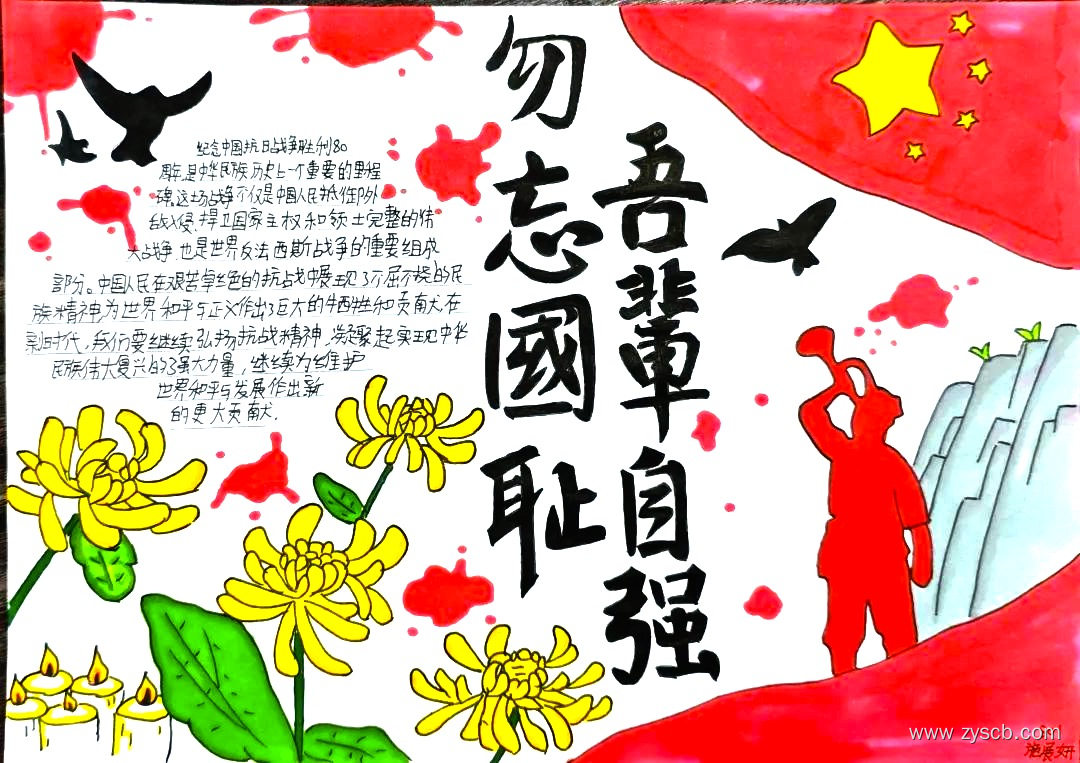 勿忘國耻
吾輩自强
纪念中国抗日战争胜利80
周年,是中华民族历史上一个重要的里程
碑。这场战争不仅是中国人民抵御外
敌入侵、捍卫国家主权和领土完整的伟
大战争,也是世界反法西斯战争的重要组成
部分。中国人民在艰苦卓绝的抗战中展现了不屈不挠的民
族精神,为世界和平与正义作出了巨大的牺牲和贡献,在
新时代,我们要继续弘扬抗战精神,凝聚起实现中华
民族伟大复兴的强大力量,继续为维护
世界和平与发展作出新
的更大贡献.
www.zyscb.com
施展妍